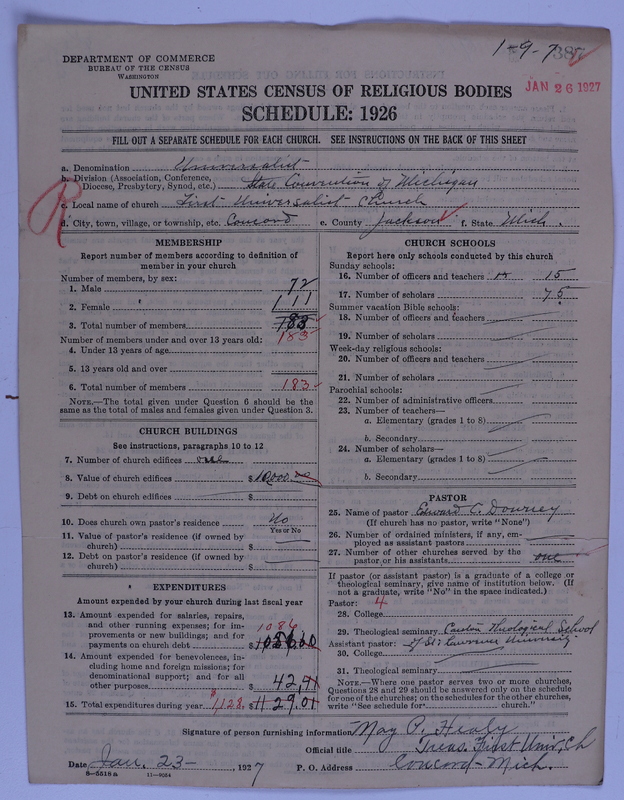 1-9-7
387
DEPARTMENT OF COMMERCE
BUREAU OF THE CENSUS
WASHINGTON
JAN 26 1927
UNITED STATES CENSUS OF RELIGIOUS BODIES
SCHEDULE: 1926
FILL OUT A SEPARATE SCHEDULE FOR EACH CHURCH. SEE INSTRUCTIONS ON THE BACK OF THIS SHEET
a. Denomination Universalist
b. Division (Association, Conference,
Diocese, Presbytery, Synod, etc.) State Convention of Michigan
c. Local name of church First Universalist Church
d. City, town, village, or township, etc. Concord e. County Jackson f. State Mich.
MEMBERSHIP
Report number of members according to definition of
member in your church
Number of members, by sex:
1. Male 72
2. Female 111
3. Total number of members 183
183
Number of members under and over 13 years old:
4. Under 13 years of age
5. 13 years old and over
6. Total number of members 183
NOTE.—The total given under Question 6 should be the
same as the total of males and females given under Question 3.
CHURCH BUILDINGS
See instructions, paragraphs 10 to 12
7. Number of church edifices one
8. Value of church edifices $10,000.00
9. Debt on church edifices $
10. Does church own pastor's residence No
Yes or No
11. Value of pastor's residence (if owned by
church) $
12. Debt on pastor's residence (if owned by
church) $
EXPENDITURES
Amount expended by your church during last fiscal year
13. Amount expended for salaries, repairs,
and other running expenses; for im-
provements or new buildings; and for
payments on church debt $
1086
14. Amount expended for benevolences, in-
cluding home and foreign missions; for
denominational support; and for all
other purposes 42.91
15. Total expenditures during year $1128. $1129.01
CHURCH SCHOOLS
Report here only schools conducted by this church
Sunday schools:
16. Number of officers and teachers 15
17. Number of scholars 75
Summer vacation Bible schools:
18. Number of officers and teachers
19. Number of scholars
Week-day religious schools:
20. Number of officers and teachers
21. Number of scholars
Parochial schools:
22. Number of administrative officers
23. Number of teachers—
a. Elementary (grades 1 to 8)
b. Secondary
24. Number of scholars—
a. Elementary (grades 1 to 8)
b. Secondary
PASTOR
25. Name of pastor Edward C. Downey
(If church has no pastor, write "None")
26. Number of ordained ministers, if any, em-
ployed as assistant pastors
27. Number of other churches served by the
pastor or his assistants one
If pastor (or assistant pastor) is a graduate of a college or
theological seminary, give name of institution below. (If
not a graduate, write "No" in the space indicated.)
Pastor: 4
28. College
29. Theological seminary Canton Theological School
Assistant pastor: of St. Lawrence University
30. College
31. Theological seminary
NOTE.—Where one pastor serves two or more churches,
Questions 28 and 29 should be answered only on the schedule
for one of the churches; on the schedules for the other churches,
write "See schedule for church."
Signature of person furnishing information May P. Healy
Official title Treas. First Univ. Ch
Date Jan. 23- , 1927 P. O. Address Concord-Mich.
8-5518 a 11-9054